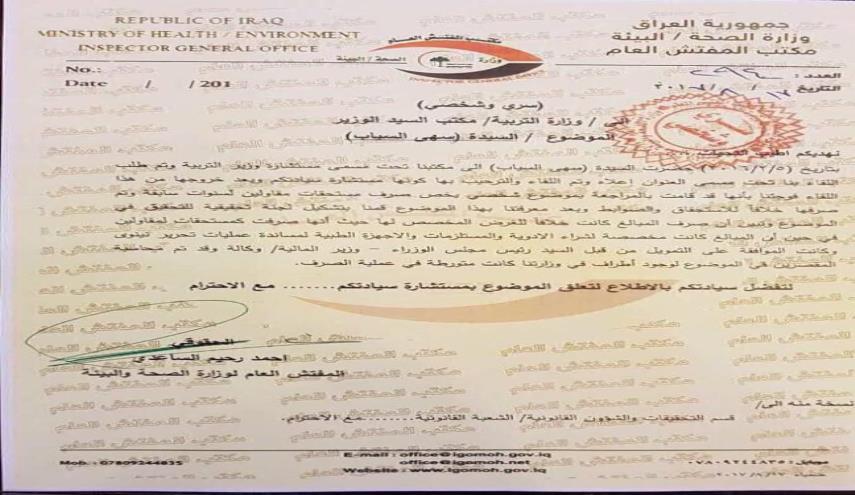 REPUBLIC OF IRAQ
MINISTRY OF HEALTH / ENVIRONMENT
INSPECTOR GENERAL OFFICE
No.:
Date / / 201
مكتب المفتش العام
وزارة الصحة / البيئة
INSPECTOR GENERAL OFFICE
جمهورية العراق
وزارة الصحة / البيئة
مكتب المفتش العام
العدد :
التاريخ
(سري وشخصي)
الى / وزارة التربية/ مكتب السيد الوزير
الموضوع / السيدة (سهى السياب)
نهديكم اطيب التحيات
بتاريخ (٢٠١٦/٢/٥) حضرت السيدة (سهى السياب) الى مكتبنا تحت مسمى مستشارة وزير التربية وتم طلب
اللقاء بنا تحت مسمى العنوان إعلاه وتم اللقاء والترحيب بها كونها مستشارة سيادتكم وبعد خروجها من هذا
اللقاء فوجئنا بأنها قد قامت بالمراجعة بموضوع شخصي يخص صرف مستحقات مقاولين لسنوات سابقة وتم
صرفها خلافاً للاستحقاق والضوابط وبعد معرفتنا بهذا الموضوع قمنا بتشكيل لجنة تحقيقية للتحقيق في
الموضوع وتبين أن صرف المبالغ كانت خلافاً للغرض المخصص لها حيث أنها صرفت كمستحقات لمقاولين
في حين أن المبالغ كانت مخصصة لشراء الادوية والمستلزمات والاجهزة الطبية لمساندة عمليات تحرير نينوى
وكانت الموافقة على التمويل من قبل السيد رئيس مجلس الوزراء – وزير المالية/ وكالة وقد تم محاسبة
المقصرين في الموضوع لوجود أطراف في وزارتنا كانت متورطة في عملية الصرف.
لتفضل سيادتكم بالاطلاع لتعلق الموضوع بمستشارة سيادتكم....... مع الاحترام
الحقوقي
احمد رحيم الساعدي
المفتش العام لوزارة الصحة والبيئة
نسخة منه الى/
قسم التحقيقات والشؤون القانونية/ الشعبة القانونية......مع الاحترام.
Mob. : 07809244835
E-mail : office@igomoh.gov.iq
office@igomoh.net
Website : www.igomoh.gov.iq
موبايل : ٠٧٨٠٩٢٤٤٨٣٥